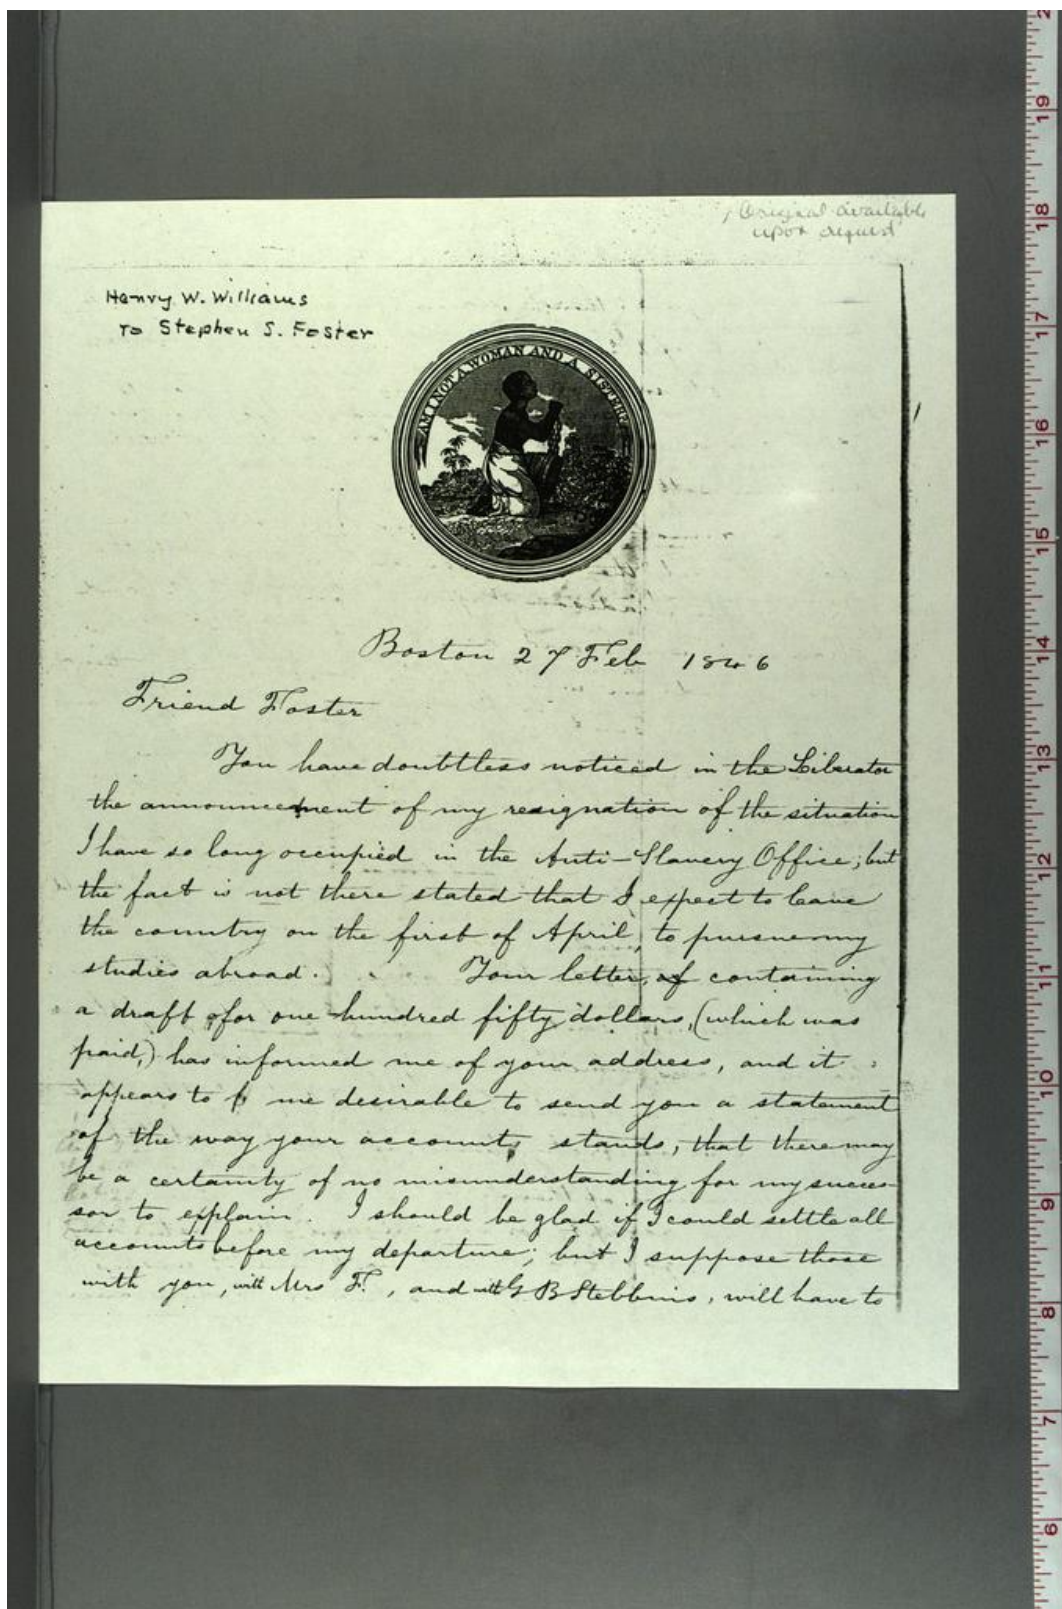 Original available
upon request
Henry W. Williams
To Stephen S. Foster
AM I NOT A WOMAN AND A SISTER?
Boston 27 Feb 1846
Friend Foster
You have doubtless noticed in the Liberator
the announcement of my resignation of the situation
I have so long occupied in the Anti-Slavery Office; but
the fact is not there stated that I expect to leave
the country on the first of April, to pursue my
studies abroad. Your letter, of containing
a draft for one hundred fifty dollars, (which was
paid,) has informed me of your address, and it
appears to me desirable to send you a statement
of the way your accounts stands, that there may
be a certainty of no misunderstanding for my succes-
sor to explain. I should be glad if I could settle all
accounts before my departure; but I suppose those
with you, with Mrs F., and with G B Stebbins, will have to
20
19
18
17
16
15
14
13
12
11
10
9
8
7
6